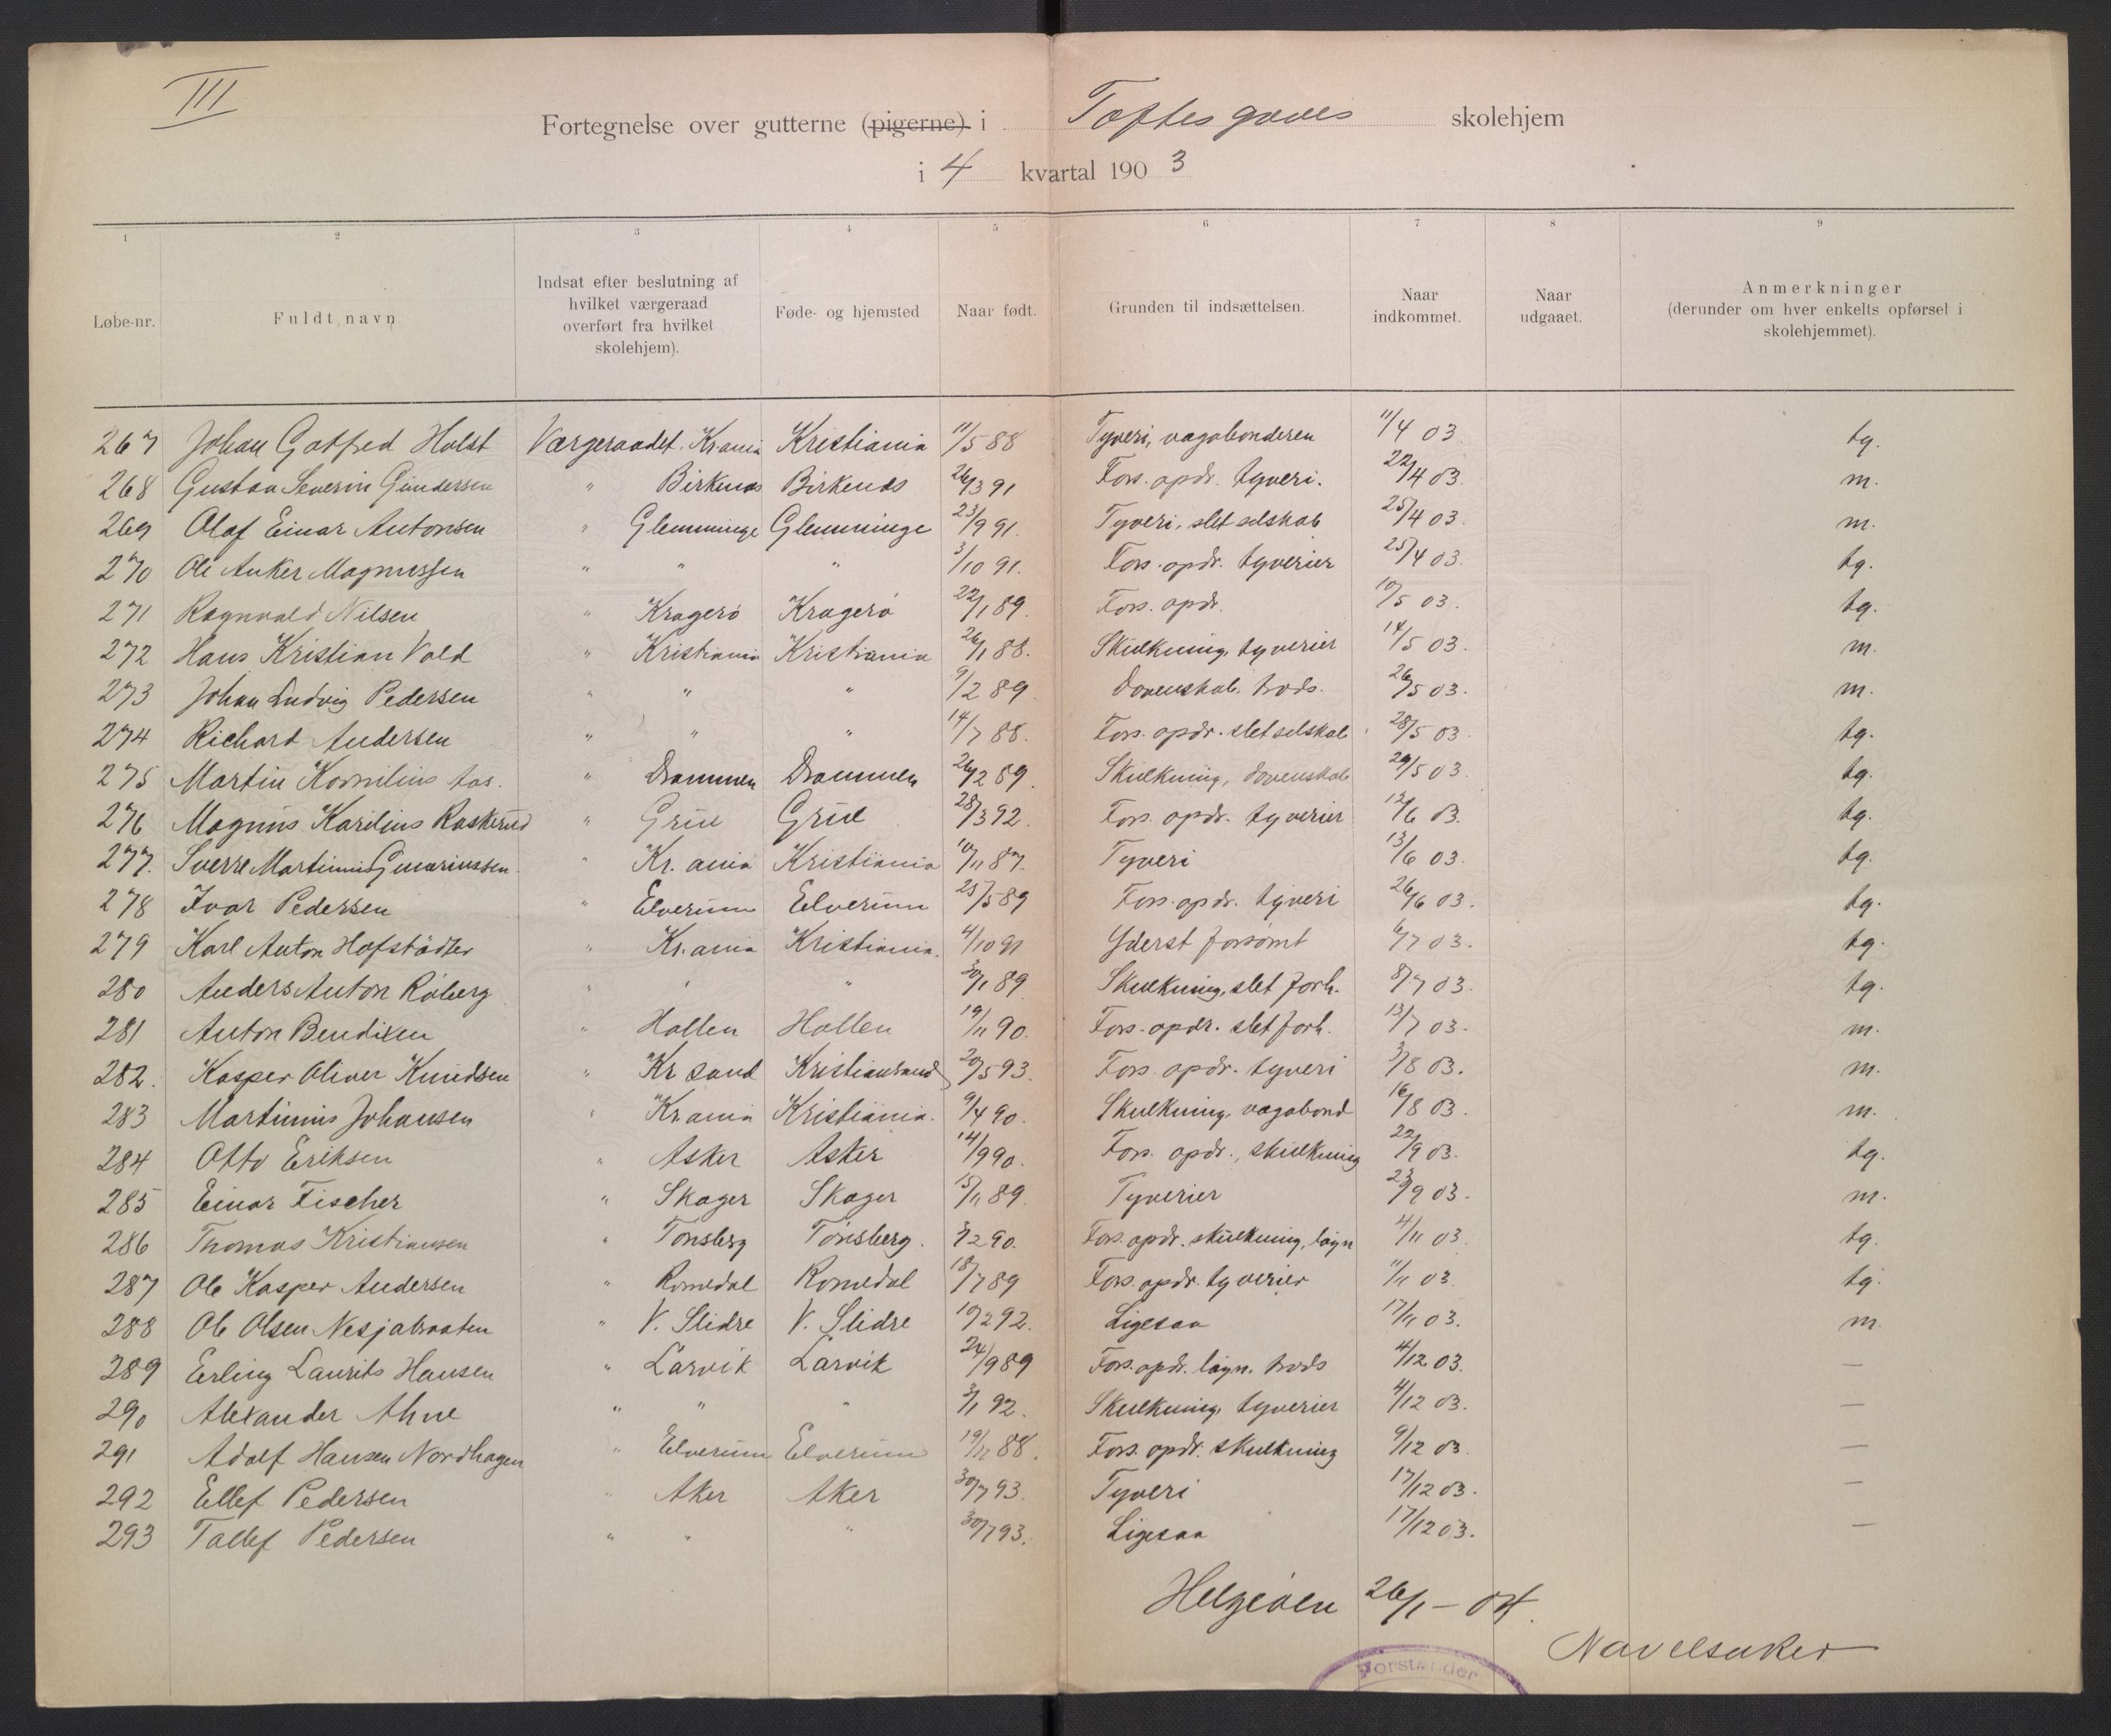 III
Fortegnelse over gutterne (pigerne) i Toftes gaves skolehjem
i 4 kvartal 1903
1 2 3 4 5 6 7 8 9
Løbe-nr. Fuldt navn Indsat efter beslutning af hvilket værgeraad overført fra hvilket skolehjem). Føde- og hjemsted Naar født. Grunden til indsættelsen. Naar indkommet. Naar udgaaet. Anmerkninger (derunder om hver enkelts opførsel i skolehjemmet).
267 Johan Gotfred Holst Værgeraadet. Kr.ania Kristiania 11/5 88 Tyveri, vagabonderen 11/4 03 tg.
268 Gustav Severin Gundersen " Birkenæs Birkenæs 26/3 91 Fors. opdr. tyveri. 22/4 03. m.
269 Olaf Einar Antonsen " Glemminge Glemminge 23/9 91. Tyveri, slet selskab 25/4 03. m.
270 Ole Anker Magnussen " " " 3/10 91. Fors. opdr. tyverier 25/4 03. tg.
271 Ragnvald Nilsen " Kragerø Kragerø 22/1 89. Fors. opdr. 10/5 03. tg.
272 Hans Kristian Vold " Kristiania Kristiania 26/1 88. Skulkning, tyverier 14/5 03. m.
273 Johan Ludvig Pedersen " " " 9/2 89. Dovenskab. trods. 26/5 03. m.
274 Richard Andersen " " " 14/7 88. Fors. opdr. slet selskab 28/5 03 tg.
275 Martin Kornilius Aas. " Drammen Drammen 26/2 89. Skulkning, dovenskab 29/5 03 tg.
276 Magnus Karilius Raskerud " Grue Grue 28/3 92. Fors. opdr. tyverier 12/6 03. tg.
277. Sverre Martinius Gunariussen. " Kr.ania Kristiania 10/11 87. Tyveri 13/6 03. tg.
278 Ivar Pedersen " Elverum Elverum 25/5 89 Fors. opdr. tyveri 26/6 03. tg.
279 Karl Anton Hofstädter " Kr.ania Kristiania. 4/10 91 Yderst forsømt 6/7 03. tg.
280 Anders Anton Røberg " " " 30/1 89 Skulkning, slet forh. 8/7 03. tg.
281 Anton Bendixen " Hollen Hollen 19/11 90. Fors. opdr. slet forh. 13/7 03. m.
282. Kasper Oliver Knudsen " Kr sand Kristiansand 20/5 93. Fors. opdr. tyveri 3/8 03. m.
283 Martinius Johansen " Kr.ania Kristiania. 9/4 90. Skulkning, vagabond 16/8 03. m.
284 Otto Eriksen " Asker Asker 14/9 90. Fors. opdr., skulkning 22/9 03. tg.
285 Einar Fischer " Skoger Skoger 15/11 89. Tyverier 23/9 03. m.
286 Thomas Kristiansen " Tønsberg Tønsberg. 3/2 90. Fors. opdr. skulkning, løgn 4/11 03. tg.
287 Ole Kasper Andersen " Romedal Romedal 18/7 89 Fors. opdr. tyverier 11/11 03. tg.
288 Ole Olsen Nesjabraaten " V. Slidre V. Slidre 10/2 92. Ligesaa 17/11 03. m.
289 Erling Laurits Hansen " Larvik Larvik 24/9 89 Fors. opdr. løgn. trods 4/12 03. —
290 Alexander Ahne " " " 3/1 92. Skulkning, tyverier 4/12 03. —
291 Adolf Hansen Nordhagen " Elverum Elverum 19/11 88. Fors. opdr. skulkning 9/12 03 —
292 Ellef Pedersen " Aker Aker 30/7 93. Tyveri 17/12 03. —
293 Tallef Pedersen " " " 30/7 93. Ligesaa 17/12 03. —
Helgeøen 26/1 – 04.
Navelsaker
Forstander